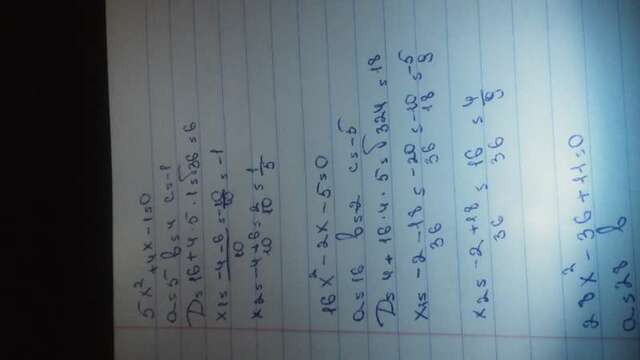 5x² + 4x - 1 = 0
a = 5 b = 4 c = -1
D = 16 + 4 · 5 · 1 = √36 = 6
x1 = -4 - 6 / 10 = -10 / 10 = -1
x2 = -4 + 6 / 10 = 2 / 10 = 1 / 5
16x² - 2x - 5 = 0
a = 16 b = -2 c = -5
D = 4 + 16 · 4 · 5 = √324 = 18
x1 = -2 - 18 / 36 = -20 / 36 = -10 / 18 = -5 / 9
x2 = -2 + 18 / 36 = 16 / 36 = 4 / 9
28x² - 36 + 11 = 0
a = 28 b